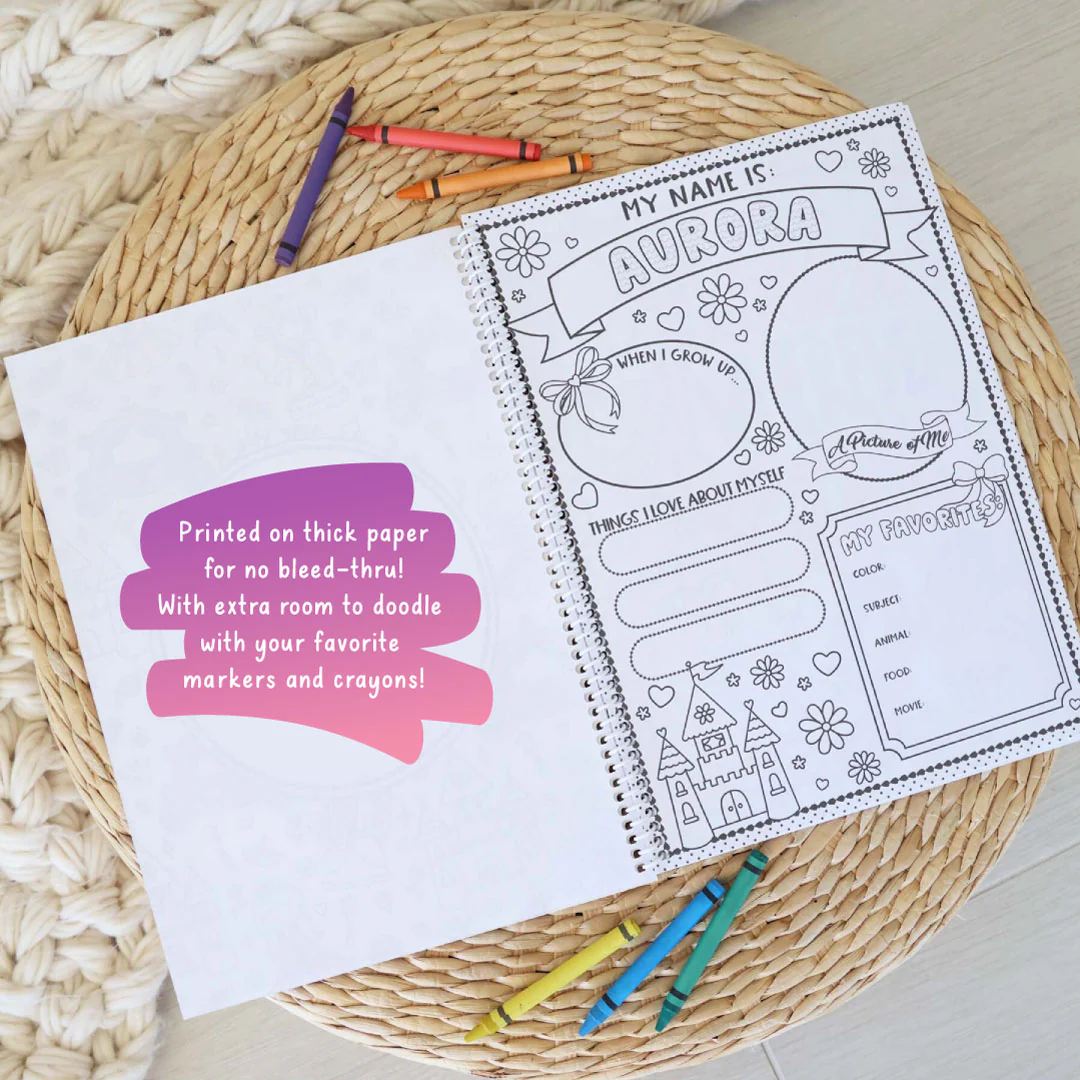 Printed on thick paper
for no bleed-thru!
With extra room to doodle
with your favorite
markers and crayons!
MY NAME IS:
AURORA
WHEN I GROW UP...
A Picture of Me
THINGS I LOVE ABOUT MYSELF
MY FAVORITES:
COLOR:
SUBJECT:
ANIMAL:
FOOD:
MOVIE: